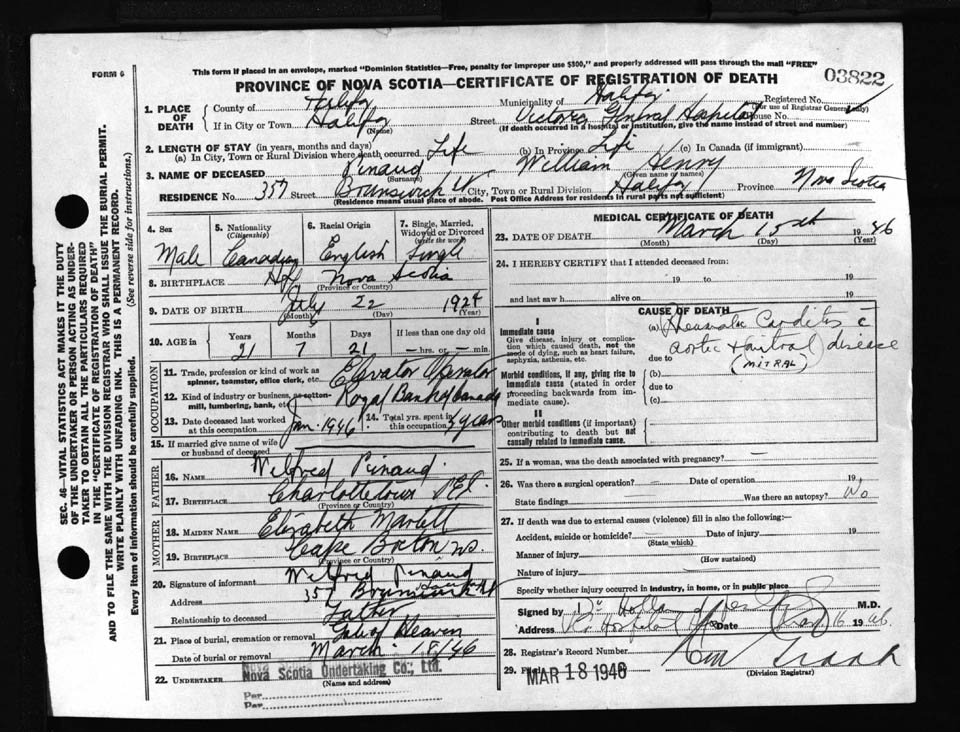 FORM 6
This form if placed in an envelope, marked "Dominion Statistics—Free, penalty for improper use $300," and properly addressed will pass through the mail "FREE"
PROVINCE OF NOVA SCOTIA—CERTIFICATE OF REGISTRATION OF DEATH
03822
1. PLACE OF DEATH County of Halifax Municipality of Halifax Registered No.
(For use of Registrar General only)
If in City or Town Halifax Street Victoria General Hospital House No.
(Name) (If death occurred in a hospital or institution, give the name instead of street and number)
2. LENGTH OF STAY (in years, months and days)
(a) In City, Town or Rural Division where death occurred Life (b) In Province Life (c) In Canada (if immigrant)
3. NAME OF DECEASED Pinaud William Henry
(Surname) (Given name or names)
RESIDENCE No. 357 Street Brunswick St City, Town or Rural Division Halifax Province Nova Scotia
(Residence means usual place of abode. Post Office Address for residents in rural parts not sufficient)
SEC. 46—VITAL STATISTICS ACT MAKES IT THE DUTY
OF THE UNDERTAKER OR PERSON ACTING AS UNDER-
TAKER TO OBTAIN ALL THE PARTICULARS REQUIRED
IN THE "CERTIFICATE OF REGISTRATION OF DEATH"
AND TO FILE THE SAME WITH THE DIVISION REGISTRAR WHO SHALL ISSUE THE BURIAL PERMIT.
WRITE PLAINLY WITH UNFADING INK. THIS IS A PERMANENT RECORD.
Every item of information should be carefully supplied. (See reverse side for instructions.)
4. Sex 5. Nationality (Citizenship) 6. Racial Origin 7. Single, Married, Widowed or Divorced (write the word)
Male Canadian English Single
8. BIRTHPLACE Hfx Nova Scotia
(Province or Country)
9. DATE OF BIRTH July 22 1924
(Month) (Day) (Year)
10. AGE in Years Months Days If less than one day old
21 7 21 — hrs. or — min.
OCCUPATION
11. Trade, profession or kind of work as spinner, teamster, office clerk, etc. Elevator Operator
12. Kind of industry or business, as cotton-mill, lumbering, bank, etc. Royal Bank of Canada
13. Date deceased last worked at this occupation Jan. 1946 14. Total yrs. spent in this occupation 3 years
15. If married give name of wife or husband of deceased
FATHER
16. NAME Wilfred Pinaud
17. BIRTHPLACE Charlottetown P.E.I.
(Province or Country)
MOTHER
18. MAIDEN NAME Elizabeth
19. BIRTHPLACE Cape Breton N.S.
(Province or Country)
20. Signature of informant Wilfred Pinaud
Address 357 Brunswick St
Relationship to deceased Father
21. Place of burial, cremation or removal Gate of Heaven
Date of burial or removal March 18/46
22. UNDERTAKER Nova Scotia Undertaking Co., Ltd.
(Name and address)
Per
Per
MEDICAL CERTIFICATE OF DEATH
23. DATE OF DEATH March 15th 1946
(Month) (Day) (Year)
24. I HEREBY CERTIFY that I attended deceased from:
19 to 19
and last saw h alive on 19
CAUSE OF DEATH
I
Immediate cause
Give disease, injury or complication which caused death, not the mode of dying, such as heart failure, asphyxia, asthenia, etc.
(a) Rheumatic Carditis c̄
aortic & mitral disease
(MITRAL)
due to
Morbid conditions, if any, giving rise to immediate cause (stated in order proceeding backwards from immediate cause).
(b)
due to
(c)
II
Other morbid conditions (if important) contributing to death but not causally related to immediate cause.
25. If a woman, was the death associated with pregnancy? —
26. Was there a surgical operation? — Date of operation — 19
State findings Was there an autopsy? No
27. If death was due to external causes (violence) fill in also the following:
Accident, suicide or homicide? Date of injury 19
(State which)
Manner of injury
(How sustained)
Nature of injury
Specify whether injury occurred in industry, in home, or in public place
Signed by M.D.
Address V.G. Hospital Hfx Date Mar 16 1946.
28. Registrar's Record Number
29. Filed MAR 18 1946
(Division Registrar)